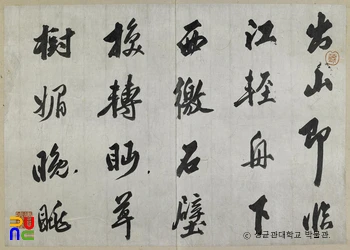 出山即臨
江輕舟下
西徼石壁
換轉眄草
樹媚晩眺
© 성균관대학교 박물관.